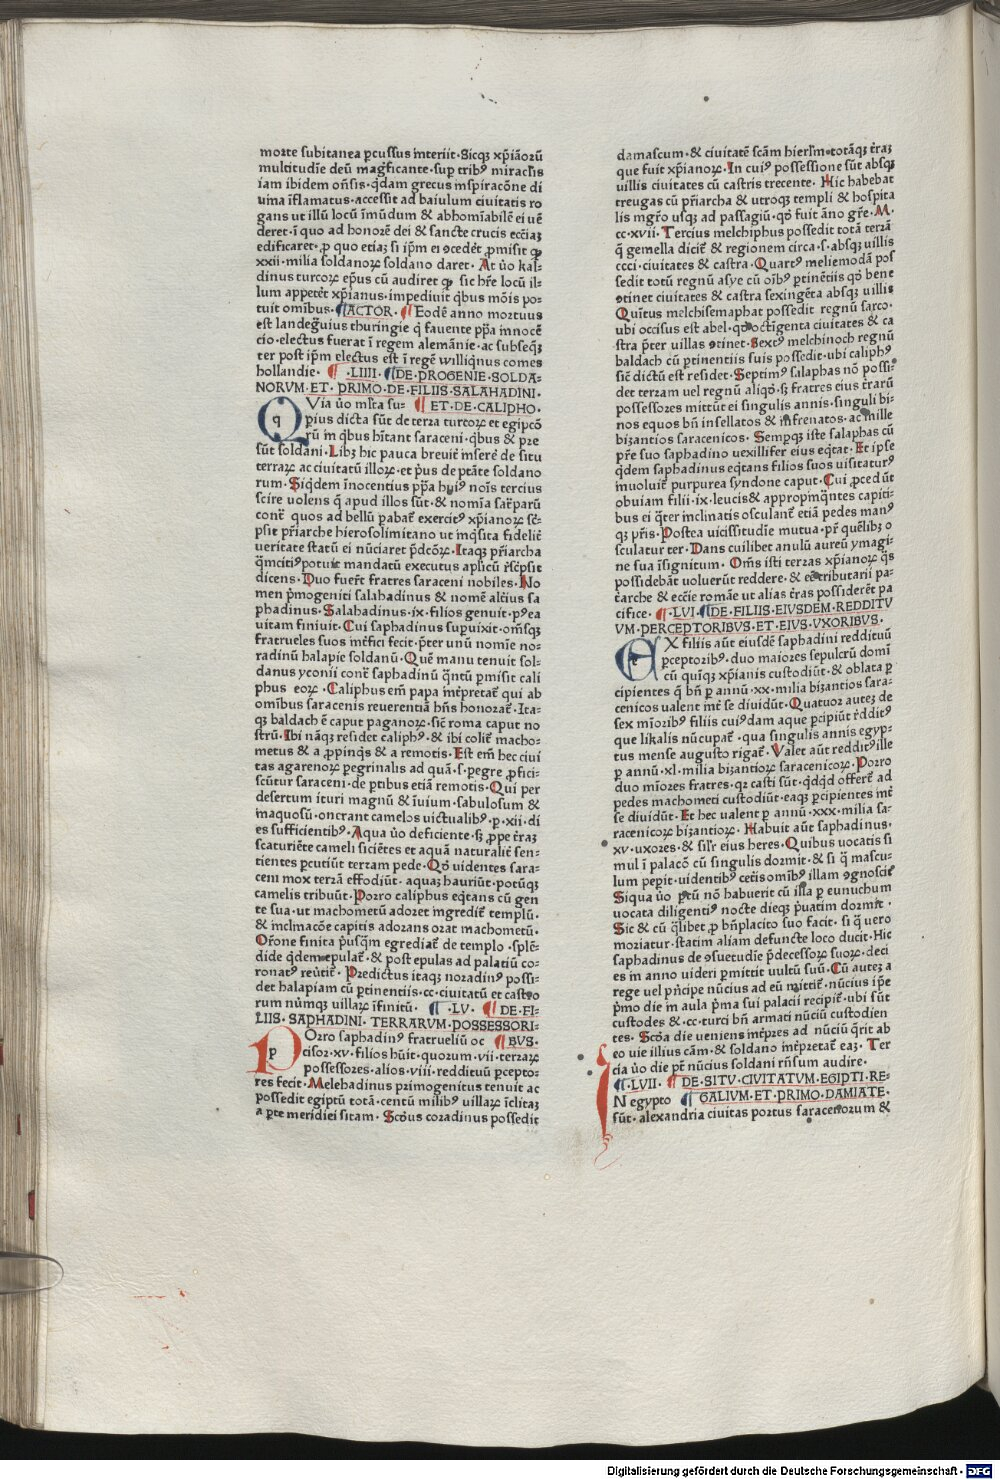 morte subitanea ꝑcussus interiit·Sicqꝫ xp̄iāoꝝ
multitudīe deū mag̃ficante·sup trib⁹ miraclis
iam ibidem oñsis·q̇dam grecus inspiracōne di
uina īflamatus·accessit ad baiulum ciuitatis ro
gans ut illū locū īmūdum & abhomīabilē ei uē
deret·ī quo ad honorē dei & sancte crucis ecc̄iaꝫ
edificaret·ꝓ quo etiaꝫ si ip̄m ei ꝯcedēt ꝓmisit ꝙ
xxii·milia soldanoꝝ soldano daret· At ůo kal-
dinus turcoꝝ ep̄us cū audiret ꝙ sic hr̄e locū il-
lum appetēt xp̄ianus·impediuit q̇bus mōis po-
tuit omībus·¶ACTOR· ¶Eodē anno mortuus
est landeg̃uius thuringie q̇ fauente pp̄a innocē
cio·electus fuerat ī regem alemānie·ac subseqꝫ
ter post ip̄m electus est ī regē willignus comes
hollandie· ¶ ·LIIII· ¶DE·PROGENIE·SOLDA-
NORVM·ET·PRIMO·DE·FILIIS·SALAHADINI·
QVia ůo ml̄ta su- ¶ ET·DE·CALIPHO·
ꝑius dicta sūt de terra turcoꝝ et egipcō
rū in q̇bus hītant saraceni·q̇bus & pre
sūt soldani·Libꝫ hic pauca breuit̄ inserē de situ
terraꝝ ac ciuitatū illoꝝ·et pͥus de ptāte soldano
rum· Siq̇dem īnocentius pp̄a hui⁹ noīs tercius
scire uolens q̇ apud illos sūt·& nomīa sar̄paru̅
cont̄ quos ad bellū ꝑabat̄ exercit⁹ xp̄ianoꝝ sc̄-
psit pr̄iarche hierosolimitano ut inq̇sita fideliē
ueritate statū ei nūciaret p̄dcōꝝ·Itaqꝫ pr̄iarcha
q̇mciti⁹potuit mandatū executus aplicū rsc̄psit
dicens·Duo fuer̄t fratres saraceni nobiles·No
men pͥmogeniti salahadinus & nomē alt̄ius sa
phadinus·Salahadinus·ix·filios genuit·p⁹ea
uitam finiuit·Cui saphadinus supuixit·om̄sqꝫ
fratrueles suos int̄fici fecit·p̄ter unū nomīe no-
radinū halapie soldanū·Quē manu tenuit sol-
danus yconii cont̄ saphadinū q̇ntū ꝑmisit cali
phus eoꝝ·Caliphus em̄ papa int̄pretat̄ qui ab
omībus saracenis reuerentiā hn̄s honorat̄·Ita-
qꝫ baldach ē caput paganoꝝ·sic̄ roma caput no
strū·Ibi nāqꝫ residet caliph⁹·& ibi colit̄ macho-
metus & a ꝓpinq̇s & a remotis·Est em̄ hec ciui
tas agarenoꝝ ꝑegrinalis ad quā·s·ꝑegre ꝓfici-
scūtur saraceni·de ꝑtibus etiā remotis·Qui per
desertum ituri magnū & īuium·sabulosum &
inaquosū·onerant camelos uictualib⁹·ꝑ·xii·di
es sufficientib⁹·Aqua ůo deficiente·sꝫ ꝓpe t̄raꝫ
scaturiēte cameli siciētes et aquā naturalit̄ sen-
tientes ꝑcutiūt terram pede·Qd̄ uidentes sara-
ceni mox terrā effodiūt· aquaꝫ hauriūt·potūqꝫ
camelis tribuūt·Porro caliphus eq̇tans cū gen
te sua·ut machometū adoret ingredit̄ templū·
& inclinacōe capitis adorans orat machometū·
Or̄one finita pͥusq̄m egrediat̄ de templo·splē-
dide q̇dem epulat̄·& post epulas ad palatiū co-
ronat⁹ reūtit̄· Predictus itaqꝫ noradin⁹ possi-
det halapiam cū ꝑtinentiis·cc·ciuitatū et castro
rum nūmqꝫ uillaꝝ īfinitū· ¶ ·LV· ¶ DE·FI-
LIIS·SAPHADINI· TERRARVM·POSSESSORI-
POrro saphadin⁹ fratrueliū oc ¶BVS·
cisor·xv·filios hūit·quorum·vii·terraꝝ
possessores·alios·viii·reddituū ꝑcepto-
res fecit·Melehadinus primogenitus tenuit ac
possedit egiptū totā·centū milib⁹ uillaꝝ īclitaꝫ
a ꝑte meridiei sitam· Scōus coradinus possedit
damascum·& ciuitatē scām hierl̄m·totāqꝫ t̄raꝫ
que fuit xp̄ianoꝝ·In cui⁹ possessione sūt absqꝫ
uillis ciuitates cū castris trecente· Hic habebat
treugas cū pr̄iarcha & utroqꝫ templi & hospita
lis mgr̄o usqꝫ ad passagiū·qd̄ fuit āno gr̄e·M·
cc·xvii·Tercius melchiphus possedit totā terrā
q̄ gemella dicit̄ & regionem circa·s·absqꝫ uillis
cccc·ciuitates & castra·Quart⁹ meliemodā pos
sedit totū regnū asye cū oīb⁹ ꝑtinētiis qd̄ bene
ꝯtinet ciuitates & castra sexingēta absqꝫ uillis
Quītus melchisemaphat possedit regnū sarco·
ubi occisus est abel·qd̄ octīgenta ciuitates & ca
stra p̄ter villas ꝯtinet·Sext⁹ melchinoch regnū
baldach cū ꝑtinentiis suis possedit·ubi caliph⁹
sic̄ dictū est residet·Septim⁹ salaphas nō possi-
det terram uel regnū aliqd̄·sꝫ fratres eius t̄rarū
possessores mittūt ei singulis annis·singuli bi-
nos equos bn̄ insellatos & infrenatos·ac mille
bizantios saracenicos· Semꝑqꝫ iste salaphas cū
pr̄e suo saphadino uexillifer eius eq̇tat·Et ipse
q̇dem saphadinus eq̇tans filios suos uisitatur⁹
inuoluit̄ purpurea syndone caput·Cui ꝓcedūt
obuiam filii·ix·leucis & appropinq̇ntes capiti-
bus ei q̇ter inclinatis osculant̄ etiā pedes man⁹
qꝫ pr̄is·Postea uicissitudīe mutua·pr̄ quēlibꝫ o
sculatur ter·Dans cuilibet anulū aureū ymagi-
ne sua īsignitum· Om̄s isti terras xp̄ianoꝝ q̇s
possidebāt uoluerūt reddere·& ee tributarii pa-
t̄arche & ecc̄ie romāe ut alias t̄ras possiderēt pa
cifice· ¶·LVI·¶DE·FILIIS·EIVSDEM·REDDITV
VM·PERCEPTORIBVS·ET·EIVS·VXORIBVS·
EX filiis aūt eiusdē saphadini reddituū
ꝑceptorib⁹·duo maiores sepulcrū domī
cū quīqꝫ xp̄ianis custodiūt·& oblata ꝑ
cipientes q̇ bn̄ ꝑ annū·xx·milia bizantios sara-
cenicos ualent int̄ se diuidūt·Quatuor autez de
sex mīorib⁹ filiis cui⁹dam aque ꝑcipiūt rddit⁹
que likalis nūcupat̄·qua singulis annis egyp-
tus mense augusto rigat̄· Valet aūt reddit⁹ille
ꝑ annū·xl·milia bizantioꝝ saracenicoꝝ·Porro
duo mīores fratres·qꝛ casti sūt·q̇dq̇d offert̄ ad
pedes machometi custodiūt·eaqꝫ ꝑcipientes int̄
se diuidūt·Et hec ualent ꝑ annū·xxx·milia sa-
racenicoꝝ bizantioꝝ· Habuit aūt saphadinus·
xv·uxores·& sil̄r eius heres·Quibus uocatis si
mul ī palacō cū singulis dormit·& si q̄ mascu-
lum peperit·uidentib⁹ cet̄is omīb⁹ illam ꝯgnoscit̄
Siqua ůo ꝑtū nō habuerit cū illa ꝑ eunuchum
uocata diligenti⁹ nocte dieqꝫ pͥuatim dormit·
Sic & cū q̄libet ꝓ bn̄placito suo facit·si q̄ uero
moriatur·statim aliam defuncte loco ducit·Hic
saphadinus de ꝯsuetudīe p̄decessoꝝ suoꝝ·deci
es in anno uideri ꝑmittit uultū suū·Cū autez a
rege uel pͥncipe nūcius ad eū mittit̄·nūcius ip̄e
pͥmo die in aula pͥma sui palacii recipit̄·ubi sūt
custodes &·cc·turci bn̄ armati nūciū custodien
tes· Scōa die ueniens int̄pres ad nūciū q̇rit ab
eo uie illius cām·& soldano int̄pretat̄ eaꝫ· Ter
cia ůo die ꝑt̄ nūcius soldani rn̄sum audire·
¶·LVII· ¶ DE·SITV·CIVITATVM·EGIPTI·RE-
IN egypto ¶ GALIVM·ET·PRIMO·DAMIATE·
sūt·alexandria ciuitas portus saracenorum &
Digitalisierung gefördert durch die Deutsche Forschungsgemeinschaft - DFG